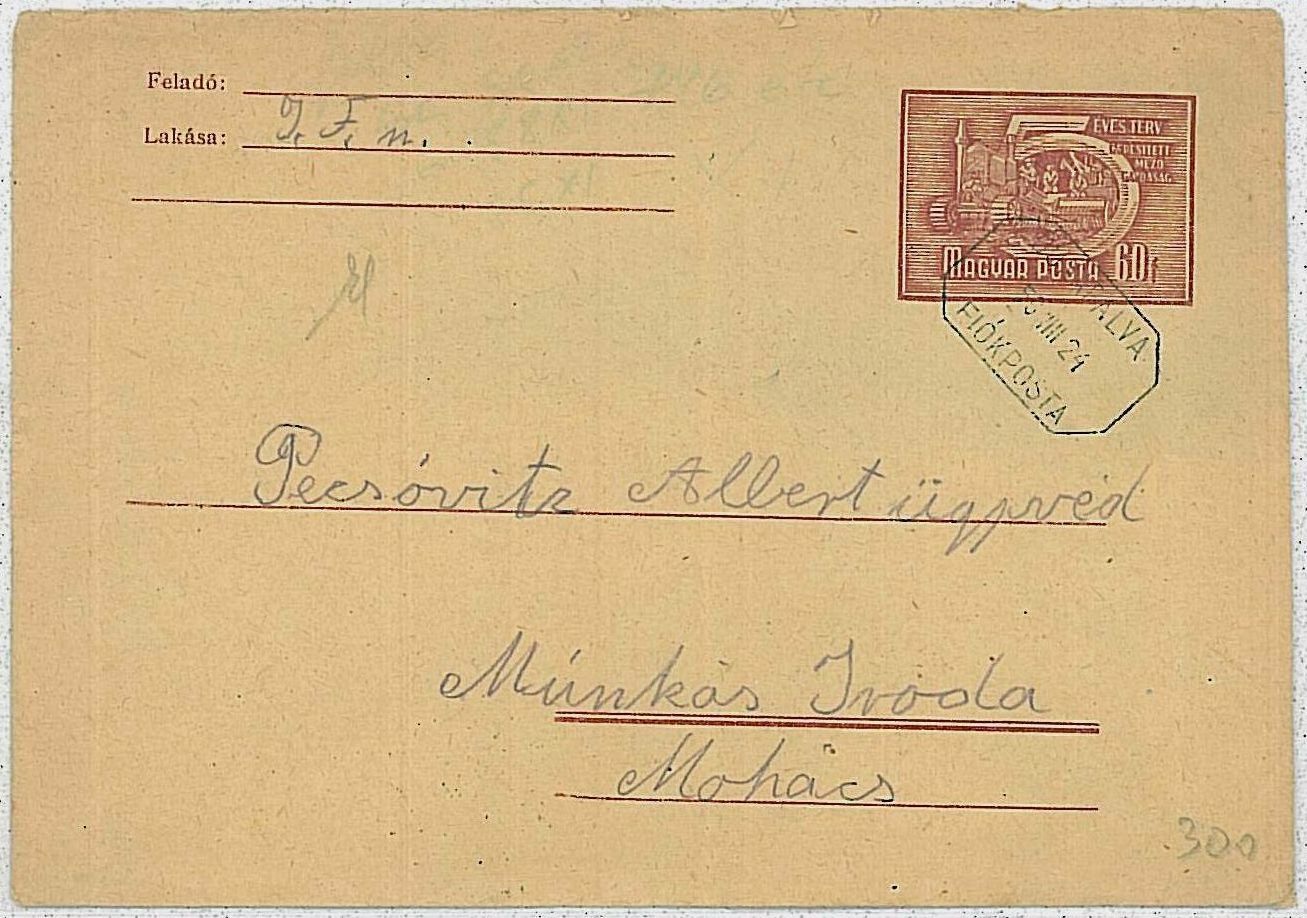 Feladó:
Lakása: J. F. n.
5 ÉVES TERV
GÉPESÍTETT
MEZŐ
GAZDASÁG
MAGYAR POSTA 60f
FALVA
VIII 24
FIÓKPOSTA
Pecsóvitz Albert ügyvéd
Múnkás Iroda
Mohács
300